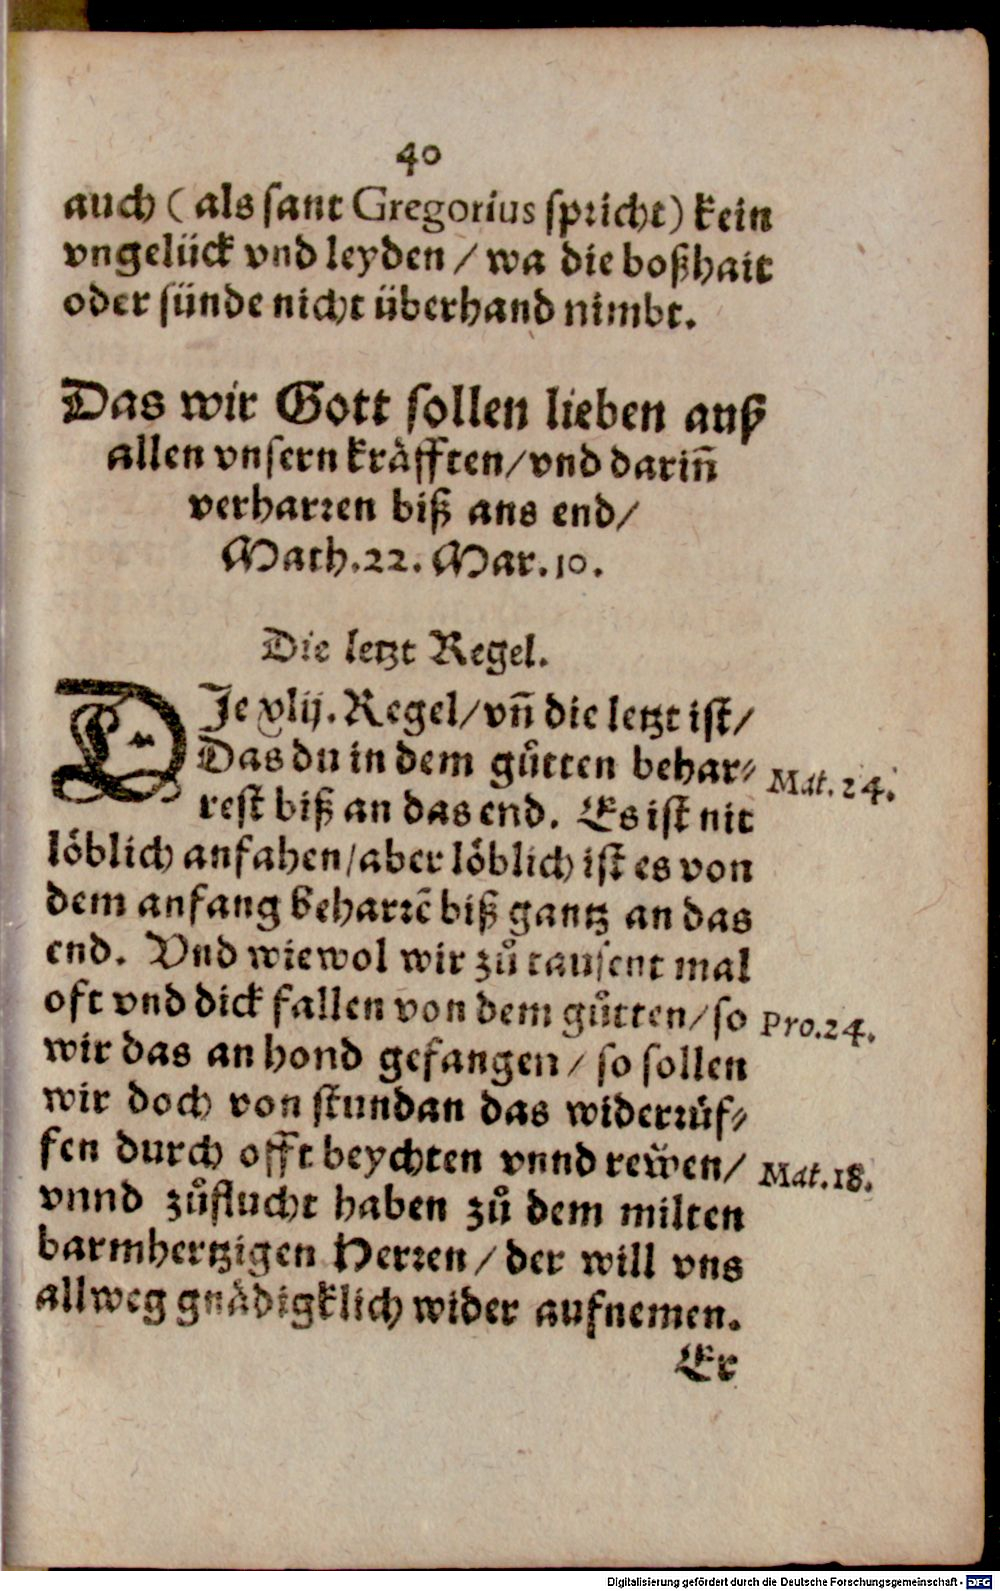 40
auch (als sant Gregorius spricht) kein
vngelück vnd leyden / wa die boßhait
oder sünde nicht überhand nimbt.
Das wir Gott sollen lieben auß
allen vnsern kräfften/vnd darin̄
verharren biß ans end/
Math.22. Mar.10.
Die letzt Regel.
DJe xlij. Regel/vn̄ die letzt ist/
Das du in dem gůtten behar⸗
Mat.24.
rest biß an das end. Es ist nit
löblich anfahen/aber löblich ist es von
dem anfang beharrē biß gantz an das
end. Vnd wiewol wir zů tausent mal
oft vnd dick fallen von dem gůtten/so
Pro.24.
wir das an hond gefangen / so sollen
wir doch von stundan das widerrůf⸗
fen durch offt beychten vnnd rewen/
Mat.18.
vnnd zůflucht haben zů dem milten
barmhertzigen Herren / der will vns
allweg gnädigklich wider aufnemen.
Er
Digitalisierung gefördert durch die Deutsche Forschungsgemeinschaft - DFG